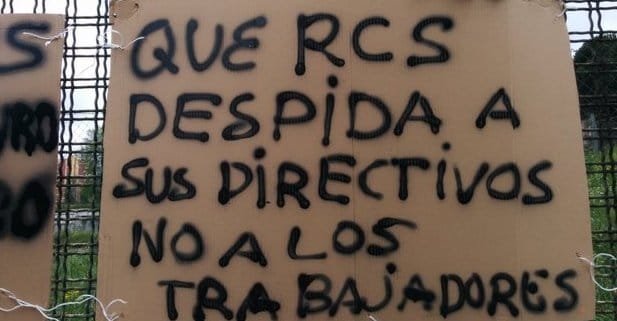 QUE RCS
DESPIDA A
SUS DIRECTIVOS
NO A LOS
TRABAJADORES